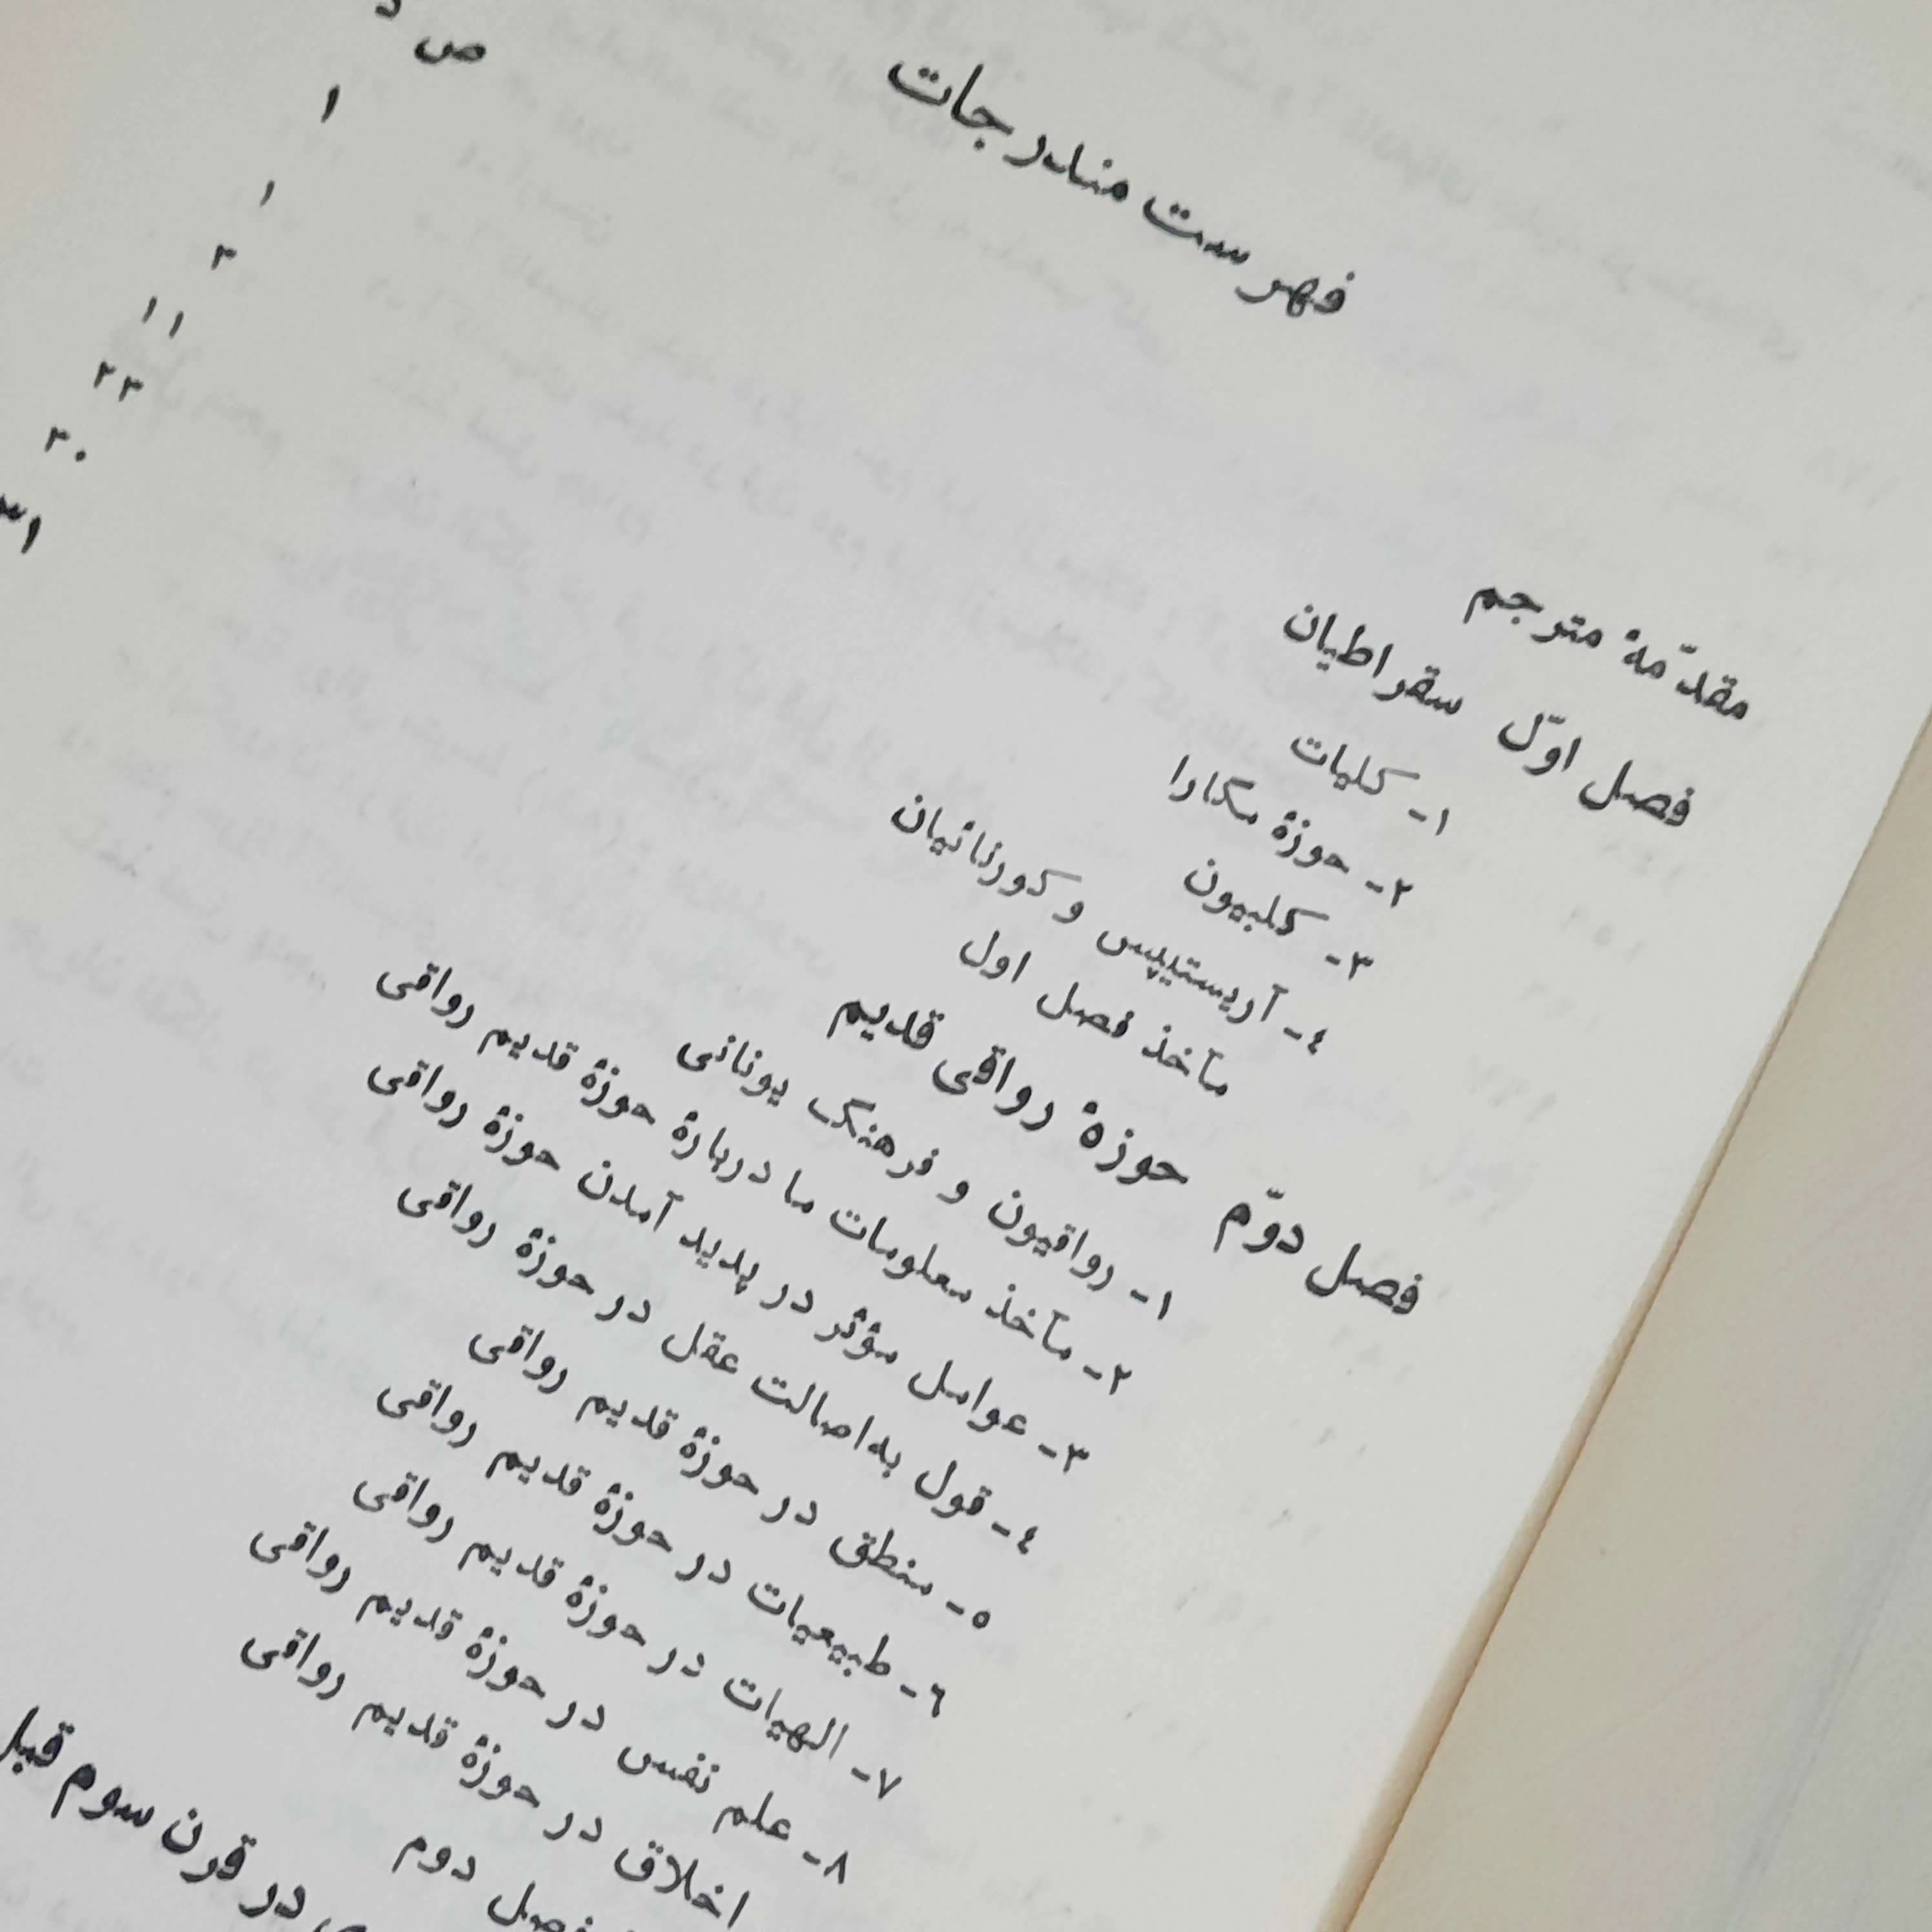 فهرست مندرجات
ص
مقدّمهٔ مترجم
فصل اوّل سقراطیان ۱
۱- کلیات ۱
۲- حوزهٔ مگارا ۳
۳- کلبیون ۱۱
٤- آریستیپس و کورنائیان ۲۳
مآخذ فصل اول ۳۰
فصل دوّم حوزهٔ رواقی قدیم ۳۱
۱- رواقیون و فرهنگ یونانی
۲- مآخذ معلومات ما دربارهٔ حوزهٔ قدیم رواقی
۳- عوامل مؤثر در پدید آمدن حوزهٔ رواقی
٤- قول به‌اصالت عقل در حوزهٔ رواقی
٥- منطق در حوزهٔ قدیم رواقی
٦- طبیعیات در حوزهٔ قدیم رواقی
۷- الهیات در حوزهٔ قدیم رواقی
۸- علم نفس در حوزهٔ قدیم رواقی
اخلاق در حوزهٔ قدیم رواقی
فصل دوم
در قرن سوم قبل